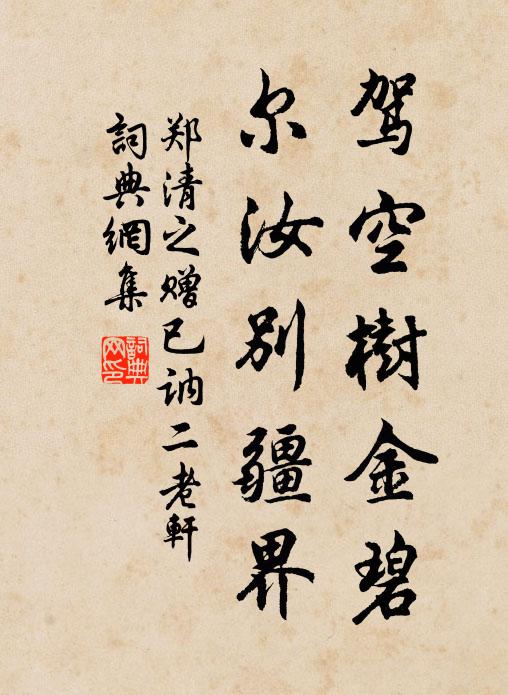 驾空樹金碧
尔汝别疆界
郑清之赠巳讷二老軒
詞典網集
詞典
网印